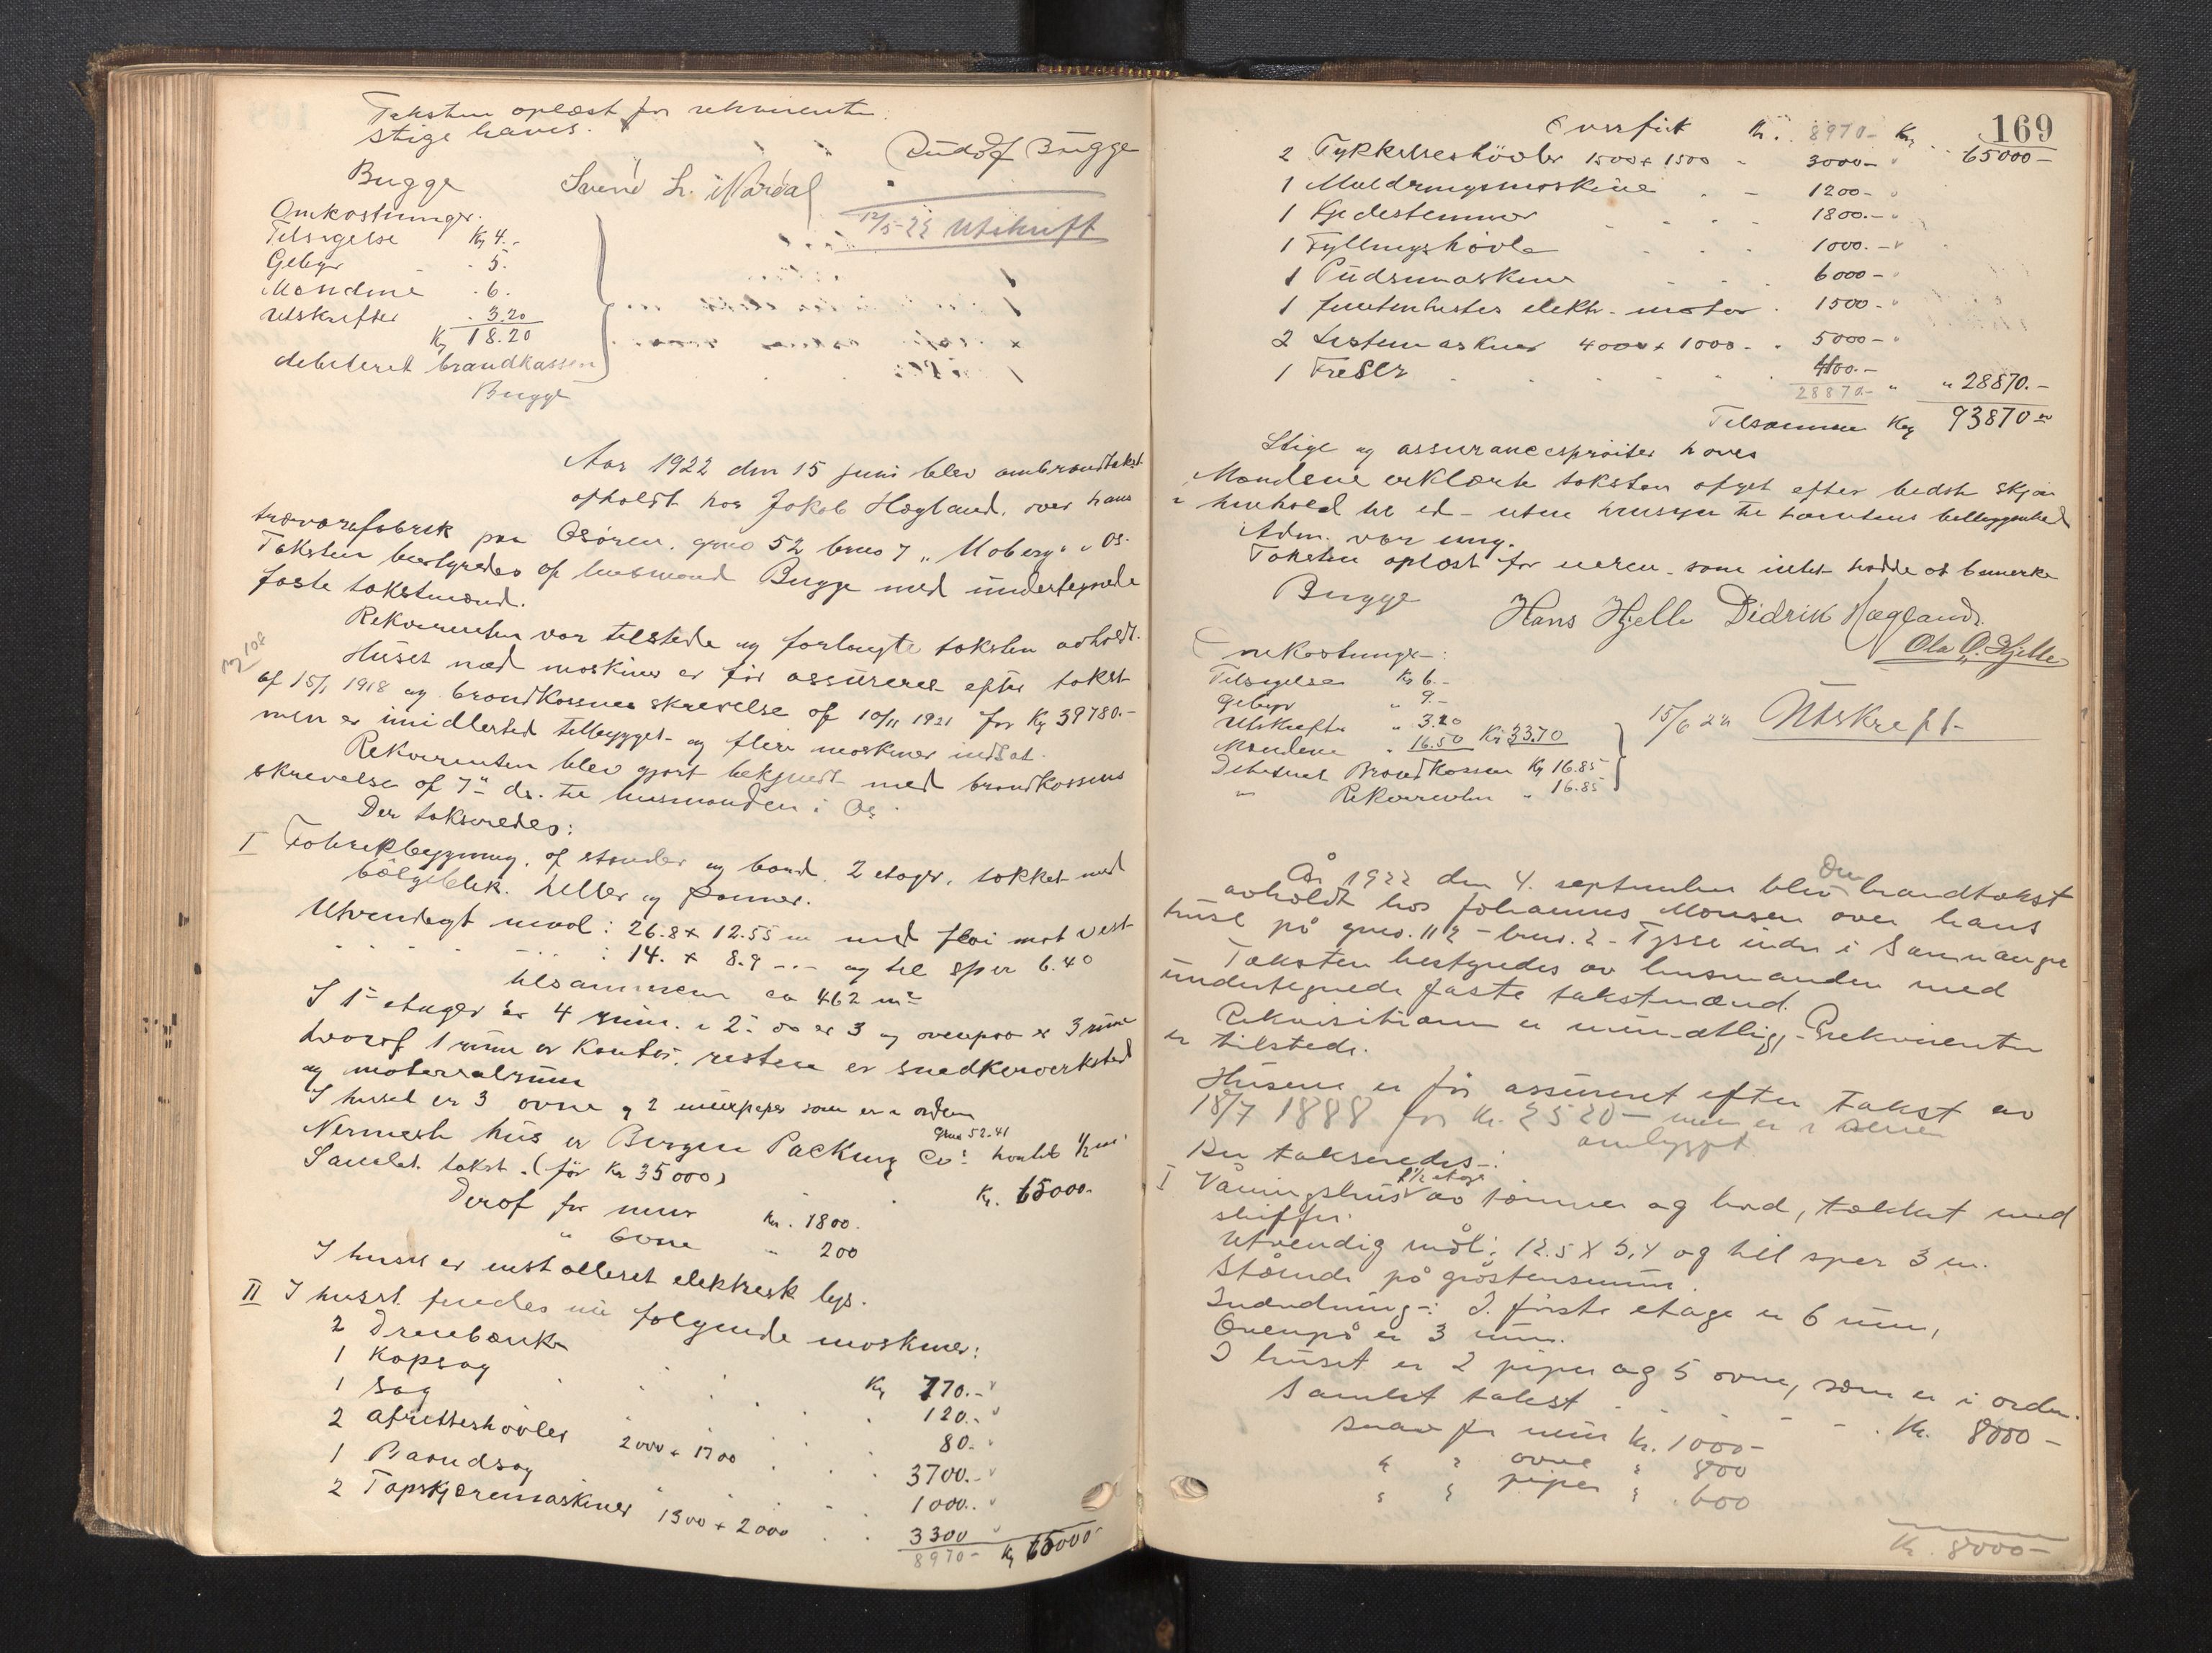 Taksten oplæst for rekvirenten.
Stige haves.
Rudolf Bugge
Bugge Svend L. Nordal
12/5-22 Utskrift
Omkostninger.
Tilsigelse Kr 4.-
Gebyr - 5.
Mændene - 6.
Utskrifter - 3.20
Kr 18.20
debiteret brandkassen
Bugge
Aar 1922 den 15 juni blev ombrandtakst
afholdt hos Jakob Hægland, over hans
trævarefabrik paa Osøren. gno 52 bno 7 "Moberg" i Os.
Taksten bestyredes af lensmand Bugge med undertegnede
faste takstmænd.
Rekvirenten var tilstede og forlangte taksten avholdt.
Huset med maskiner er før assureret efter takst
af 15/1 1918 og brandkassens skrivelse af 10/11 1921 for Kr 39780.-
men er imidlertid tilbygget og flere maskiner indsat.
Rekvirenten blev gjort bekjendt med brandkassens
skrivelse af 7- ds. til lensmanden i Os.
Der takseredes:
I Fabrikbygning, af stender og bord, 2 etager, tækket med
bølgeblik, heller og panner.
Utvendigt maal: 26.8 x 12.55 m med fløi mot vest
- - - - - : 14. x 8.9 - - - og til sper 6.40
tilsammen ca 462 m2
I 1- etager er 4 rum, i 2- do er 3 og ovenpaa er 3 rum
hvoraf 1 rum er kontor, resten er snedkerverksted
og materialrum
I huset er 3 ovne og 2 murpiper som er i orden
Nermeste hus er Bergen Packing Co: gno 52.41
Samlet takst. (før Kr 35000) Kr. 65000.
Deraf for mur Kr. 1800.
" ovne " 200
I huset er installeret elektrisk lys.
II I huset findes nu følgende maskiner:
2 Dreiebænke Kr 770.-
1 Kapsag 120.-
1 Sag 80.-
2 Afretterhøvler 2000 + 1700 3700.-
1 Baandsag 1000.-
2 Tapskjæremaskiner 1300 + 2000 3300
8970- Kr 65000-
169
Overført Kr. 8970- Kr 65000-
2 Tykkelseshøvler 1500 + 1500 - 3000-
1 Muldringsmaskine - 1200-
1 Kjedestemmer 1800.-
1 Fyllingshøvle 1000.-
1 Pudsemaskine 6000-
1 femtenhestes elektr. motor 1500-
2 Listemaskiner 4000 + 1000 - 5000-
1 Freser 400.-
28870.- " 28870.-
Tilsammen Kr 93870.00
Stige og assurancesprøiter haves
Mændene erklærte taksten afgit efter bedste skjøn
i henhold til ed - uten hensyn til tomtens beliggenhed
Adm. var enig.
Taksten oplæst for eieren - som intet hadde at bemerke
Bugge Hans Hjelle Didrik Hægland.
Ola O. Hjelle
Omkostninger:
Tilsigelse Kr 6.-
Gebyr " 9.-
Utskrifter " 3.20
Mændene " 16.50 Kr 33.70
Debiteret Brandkassen Kr 16.85
" Rekvirenten " 16.85
15/6 22 Utskrift
År 1922 den 4. september blev Om brandtakst
avholdt hos Johannes Monsen over hans
huse på gno. 112 - bno. 2 - Tysse indre i Samnanger
Taksten bestyredes av lensmanden med
undertegnede faste takstmænd.
Rekvisitionen er mundtlig - Rekvirenten
er tilstede.
Husene er før assureret efter takst av
18/7 1888 for Kr. 2520 - men er i senere
ombygget
Der takseredes:
I Våningshus 1 1/2 etage av tømmer og bord, tækket med
skiffer.
Utvendig mål: 12.5 X 5,4 og til sper 3 m.
Stående på gråstensmur.
Indredning: I første etage er 6 rum,
Ovenpå er 3 rum.
I huset er 2 piper og 5 ovne, som er i orden.
Samlet takst - - - - - Kr. 8000 -
Derav for mur Kr. 1000 -
" " ovne " 800
" " piper " 600
Kr. 8000 -